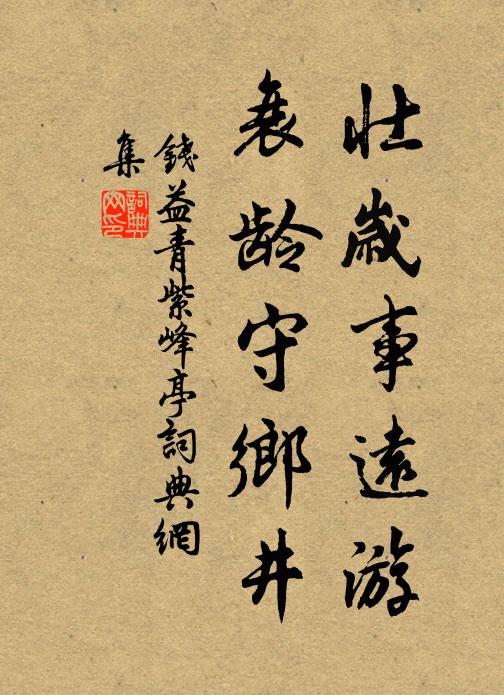 壮歲事遠游
衰齡守鄉井
錢益青紫峰亭詞典網
集
詞典网印